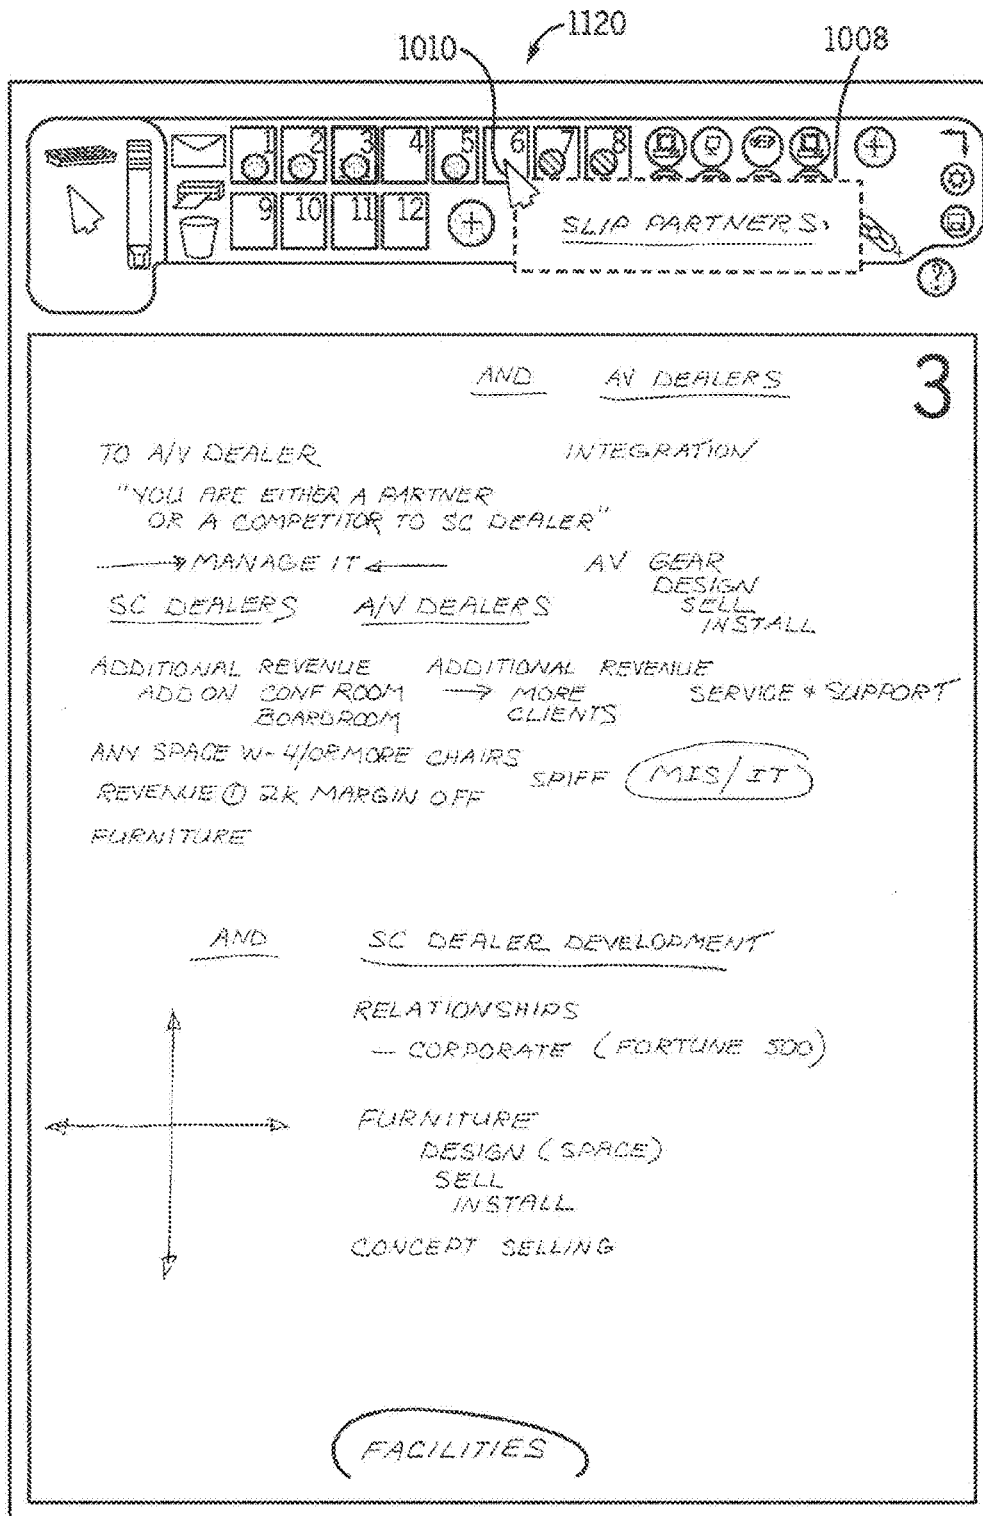 1120
1010
1008
1 2 3 4 5 6 7 8
9 10 11 12
SLIP PARTNERS:
?
3
AND AV DEALERS
TO A/V DEALER INTEGRATION
"YOU ARE EITHER A PARTNER
OR A COMPETITOR TO SC DEALER"
MANAGE IT AV GEAR
DESIGN
SC DEALERS A/V DEALERS SELL
INSTALL
ADDITIONAL REVENUE ADDITIONAL REVENUE
ADD ON CONF ROOM → MORE SERVICE & SUPPORT
BOARDROOM CLIENTS
ANY SPACE W- 4/OR MORE CHAIRS
SPIFF MIS/IT
REVENUE ① 2K MARGIN OFF
FURNITURE
AND SC DEALER DEVELOPMENT
RELATIONSHIPS
— CORPORATE (FORTUNE 500)
FURNITURE
DESIGN (SPACE)
SELL
INSTALL
CONCEPT SELLING
FACILITIES